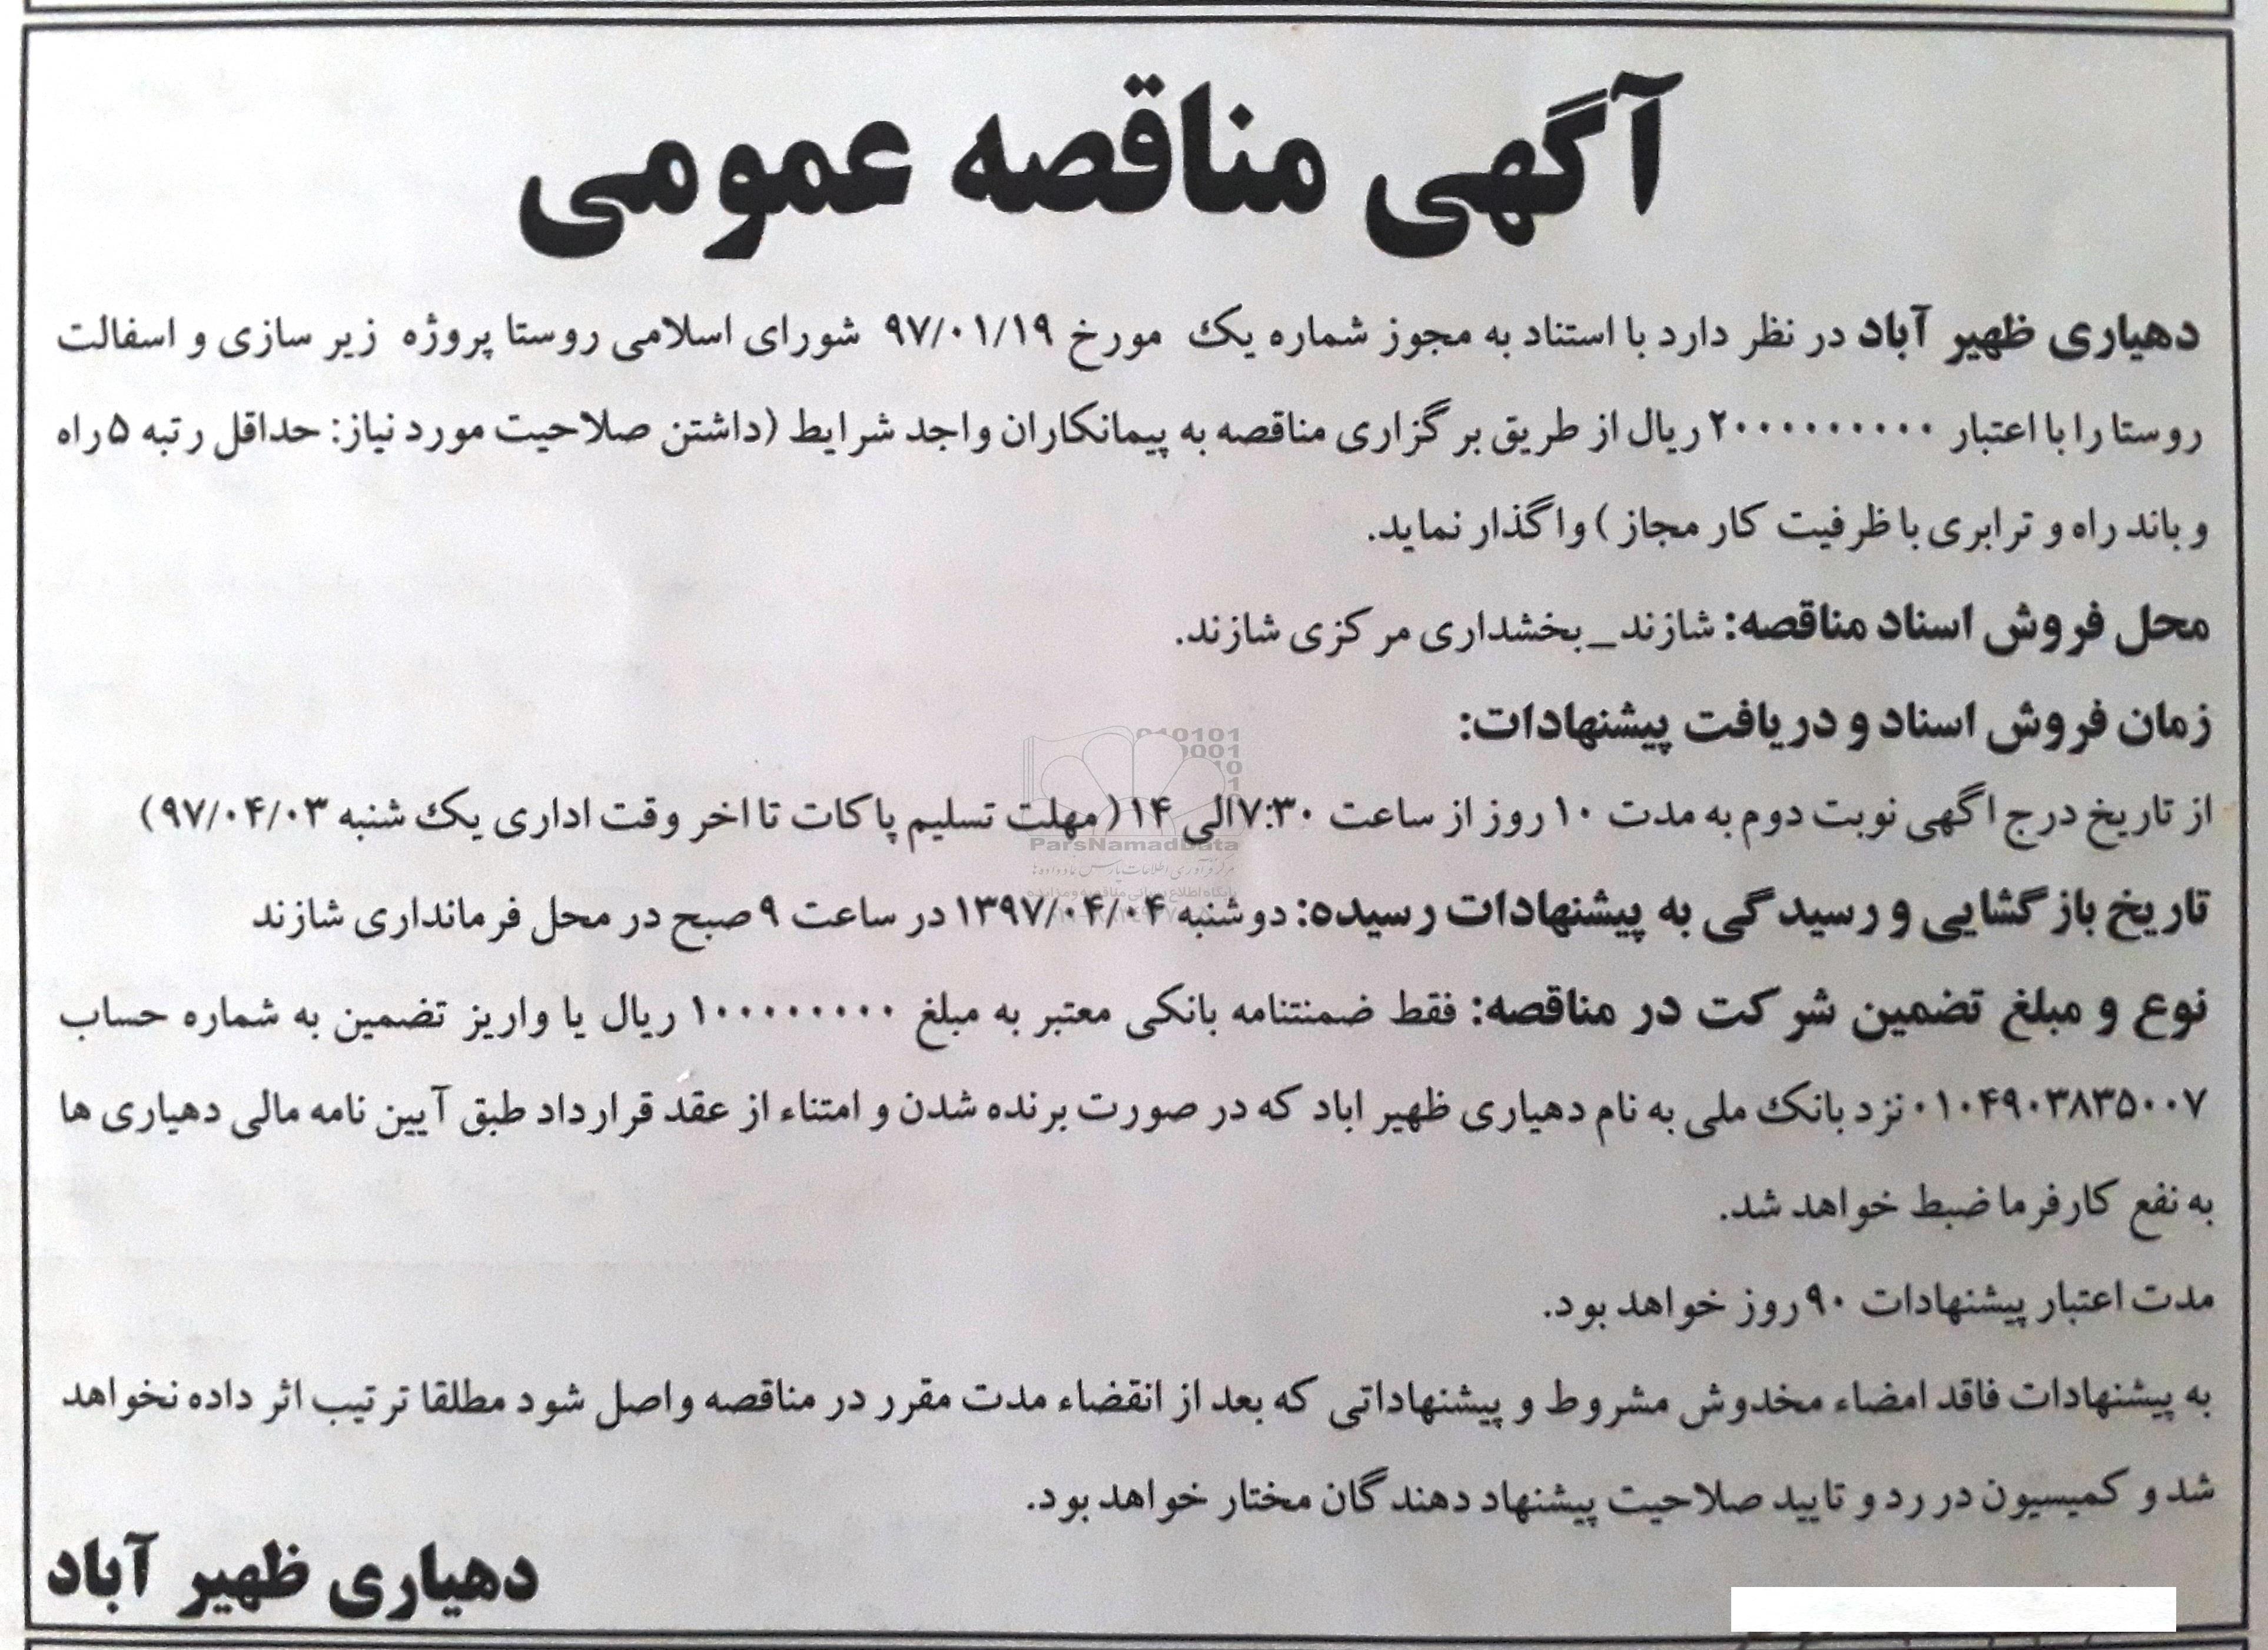 آگهی مناقصه عمومی
دهیاری ظهیر آباد در نظر دارد با استناد به مجوز شماره یک مورخ ۹۷/۰۱/۱۹ شورای اسلامی روستا پروژه زیر سازی و اسفالت
روستا را با اعتبار ۲۰۰۰۰۰۰۰۰۰۰ ریال از طریق برگزاری مناقصه به پیمانکاران واجد شرایط (داشتن صلاحیت مورد نیاز: حداقل رتبه ۵ راه
و باند راه و ترابری با ظرفیت کار مجاز) واگذار نماید.
محل فروش اسناد مناقصه: شازند_بخشداری مرکزی شازند.
زمان فروش اسناد و دریافت پیشنهادات:
010101
0001
10
1
از تاریخ درج اگهی نوبت دوم به مدت ۱۰ روز از ساعت ۷:۳۰الی ۱۴ (مهلت تسلیم پاکات تا اخر وقت اداری یک شنبه ۹۷/۰۴/۰۳)
ParsNamadData
مرکز فرآوری اطلاعات پارس نماد داده‌ها
پایگاه اطلاع رسانی مناقصه و مزایده
تاریخ بازگشایی و رسیدگی به پیشنهادات رسیده: دوشنبه ۱۳۹۷/۰۴/۰۴ در ساعت ۹ صبح در محل فرمانداری شازند
نوع و مبلغ تضمین شرکت در مناقصه: فقط ضمنتنامه بانکی معتبر به مبلغ ۱۰۰۰۰۰۰۰۰۰ ریال یا واریز تضمین به شماره حساب
۰۱۰۴۹۰۳۸۳۵۰۰۷ نزد بانک ملی به نام دهیاری ظهیر اباد که در صورت برنده شدن و امتناء از عقد قرارداد طبق آیین نامه مالی دهیاری ها
به نفع کارفرما ضبط خواهد شد.
مدت اعتبار پیشنهادات ۹۰ روز خواهد بود.
به پیشنهادات فاقد امضاء مخدوش مشروط و پیشنهاداتی که بعد از انقضاء مدت مقرر در مناقصه واصل شود مطلقا ترتیب اثر داده نخواهد
شد و کمیسیون در رد و تایید صلاحیت پیشنهاد دهندگان مختار خواهد بود.
دهیاری ظهیر آباد